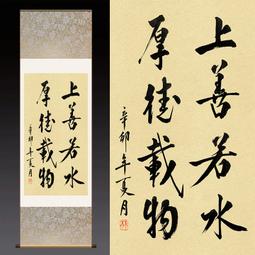 上善若水
厚德載物
辛卯年夏月
上善若水
厚德載物
辛卯年夏月